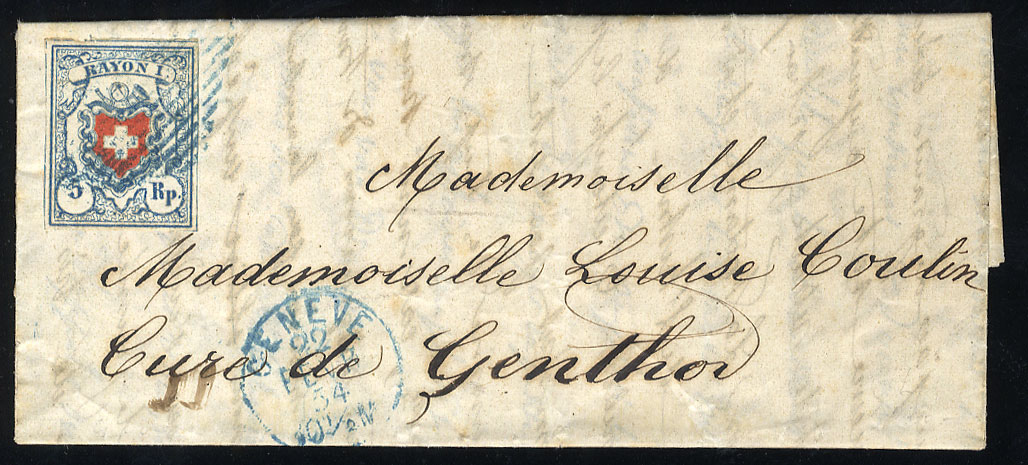 RAYON I.
5 Rp.
Mademoiselle
Mademoiselle Louise Coulin
Cure de Genthod
GENEVE
22
54